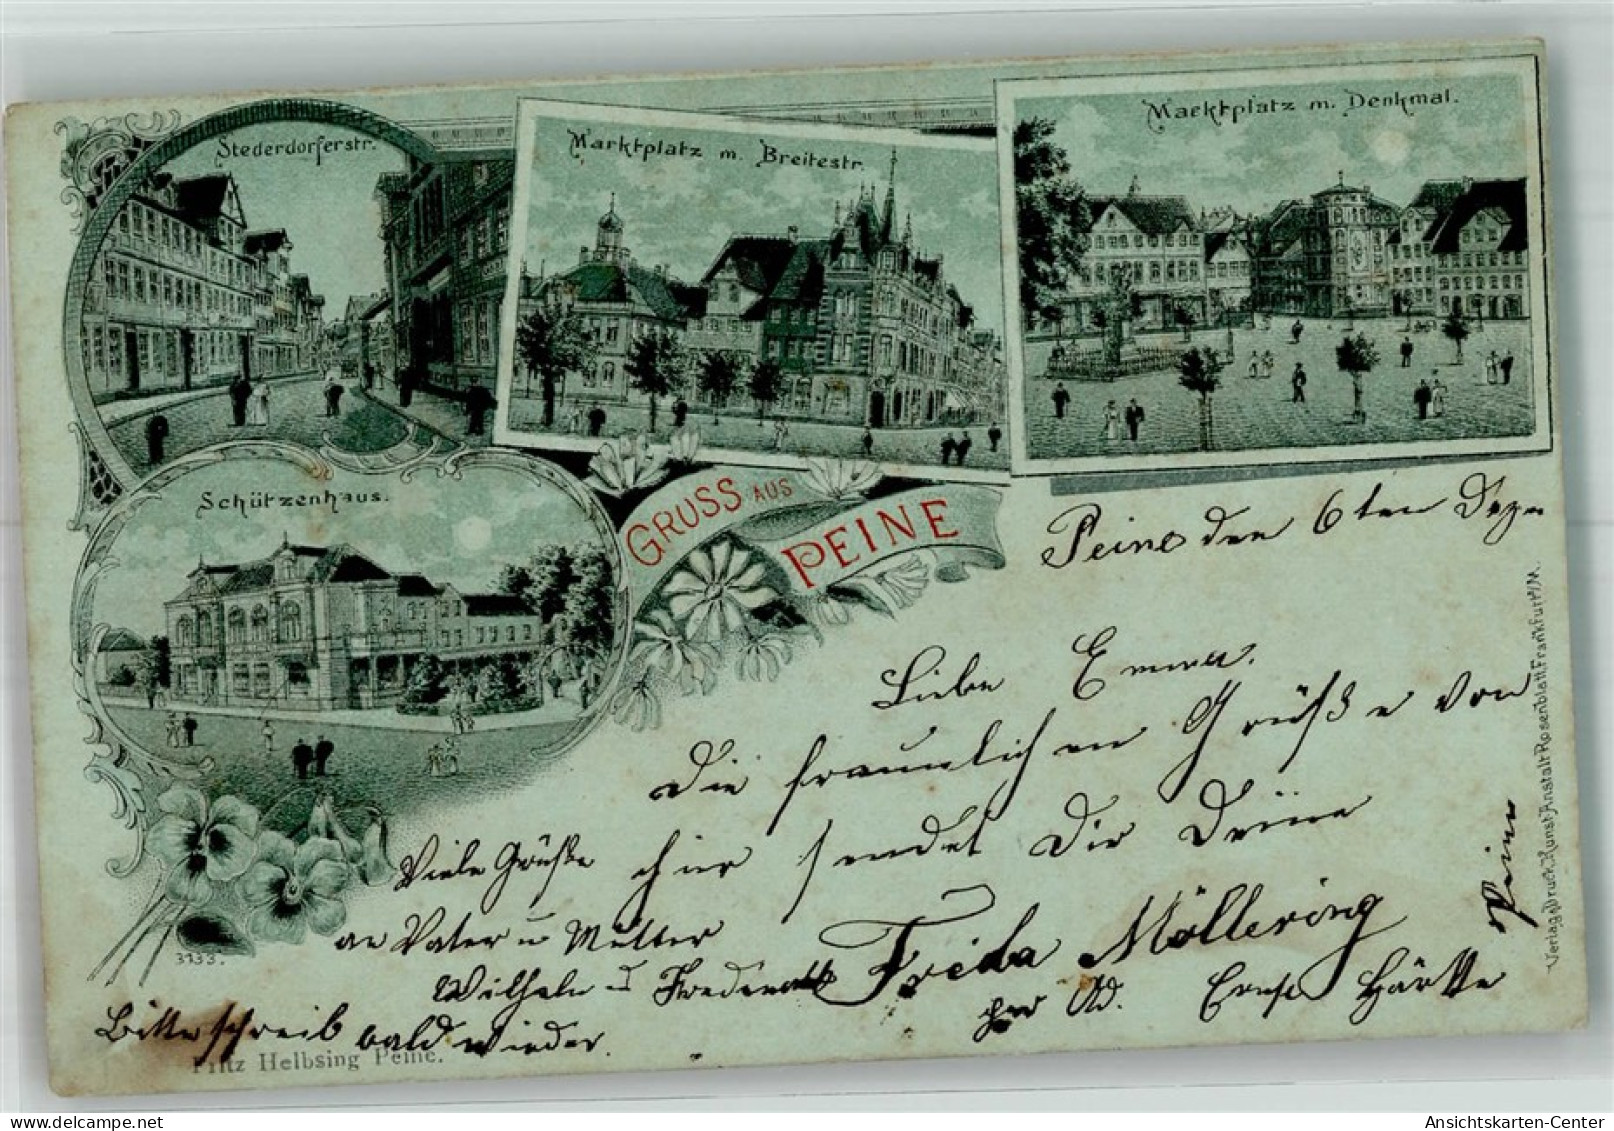 Stederdorferstr.
Marktplatz m. Breitestr.
Marktplatz m. Denkmal.
Schützenhaus.
GRUSS AUS
PEINE
Peine den 6ten Dez
Liebe Emma.
Die freundlichen Grüße von
hier sendet Dir Deine
Frieda Möllering
Viele Grüße
an Vater u Mutter
Wilhelm u
Bitte schreib bald wieder.
per Ad. Ernst
Peine
3133.
Fritz Helbsing Peine.
Verlag, Druck, Kunst-Anstalt Rosenblatt, Frankfurt a/M.
delcampe.net
tintin1122
Ansichtskarten-Center